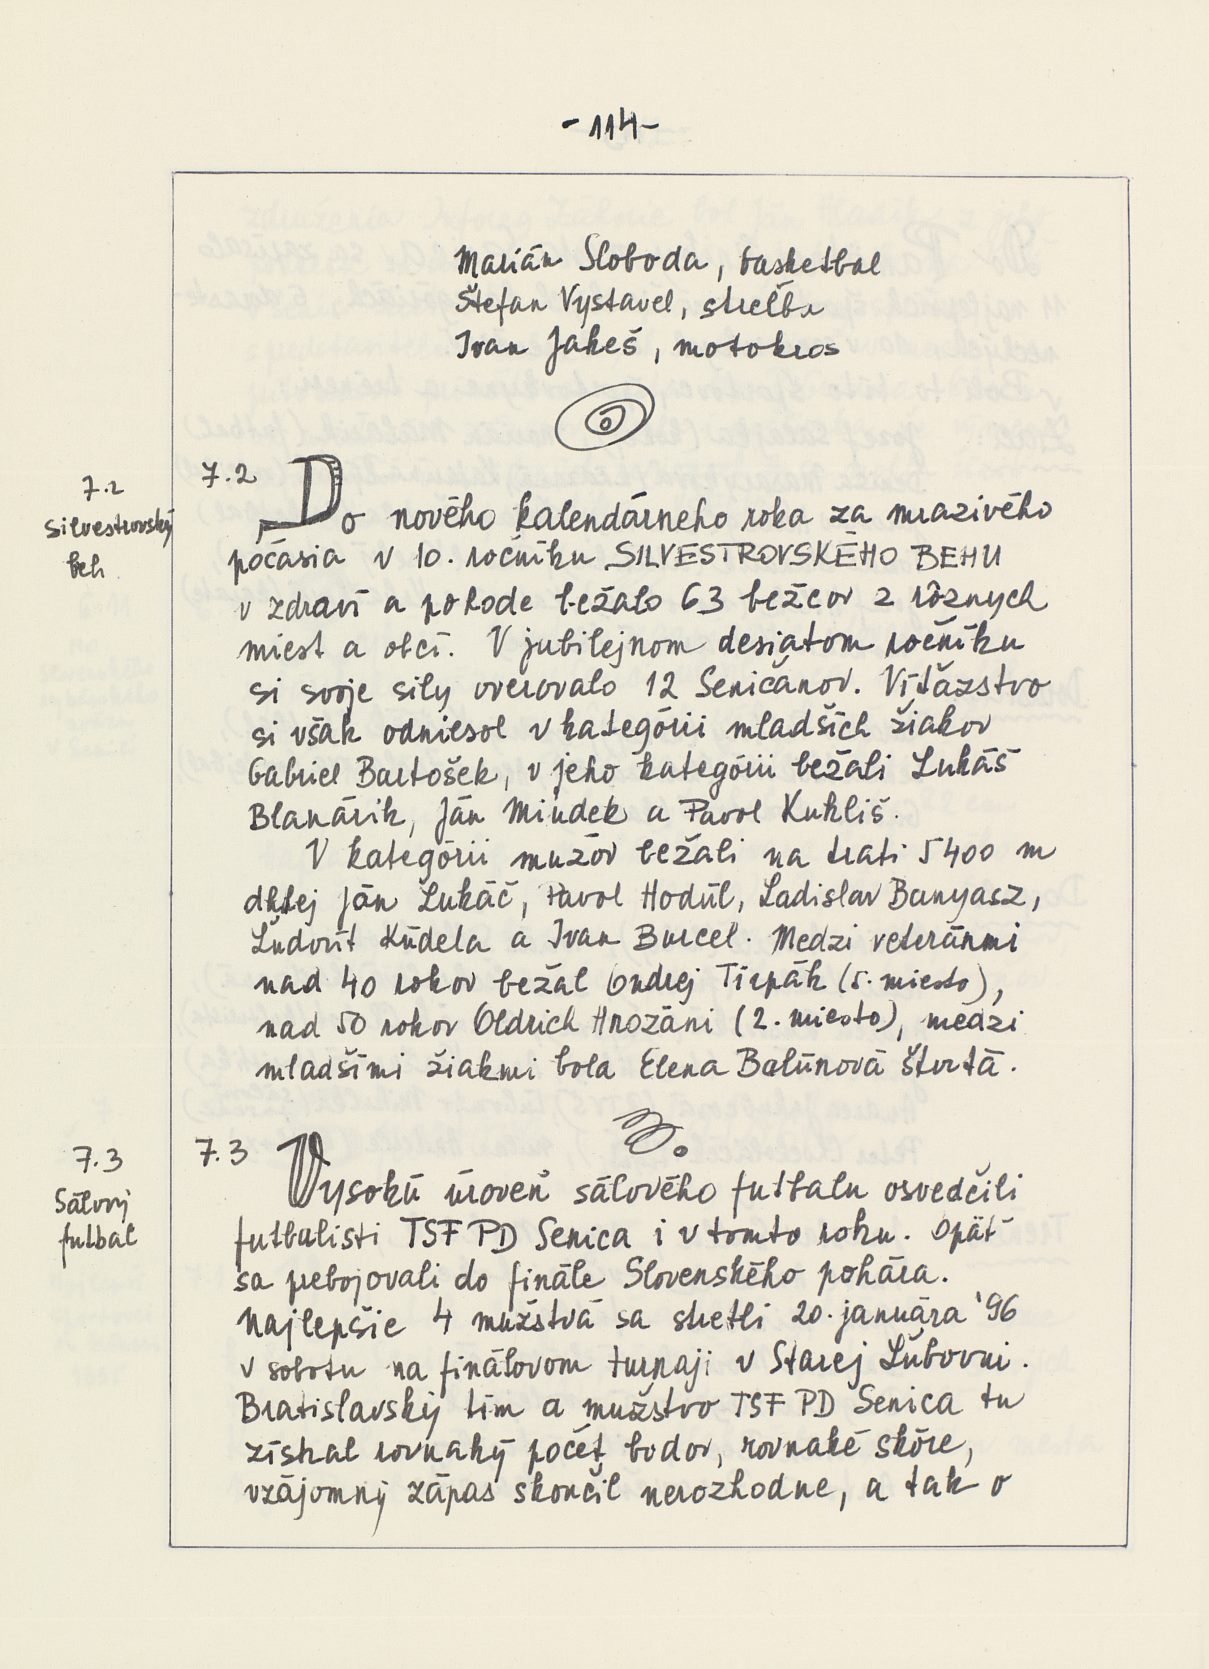 - 114 -
Marián Sloboda, basketbal
Štefan Vystavel, streľba
Ivan Jakeš, motokros
7.2
Silvestrovský
beh
7.2 Do nového kalendárneho roka za mrazivého
počasia v 10. ročníku SILVESTROVSKÉHO BEHU
v zdraví a pohode bežalo 63 bežcov z rôznych
miest a obcí. V jubilejnom desiatom ročníku
si svoje sily overovalo 12 Seničanov. Víťazstvo
si však odniesol v kategórii mladších žiakov
Gabriel Bartošek, v jeho kategórii bežali Lukáš
Blanárik, Ján Mindek a Pavol Kukliš.
V kategórii mužov bežali na trati 5400 m
dlhej Ján Lukáč, Pavol Hodúl, Ladislav Banyasz,
Ľudovít Kúdela a Ivan Burcel. Medzi veteránmi
nad 40 rokov bežal Ondrej Tirpák (5. miesto),
nad 50 rokov Oldrich Hrozáni (2. miesto), medzi
mladšími žiakmi bola Elena Balúnová štvrtá.
7.3
Sálový
futbal
7.3 Vysokú úroveň sálového futbalu osvedčili
futbalisti TSF PD Senica i v tomto roku. Opäť
sa prebojovali do finále Slovenského pohára.
Najlepšie 4 mužstvá sa stretli 20. januára '96
v sobotu na finálovom turnaji v Starej Ľubovni.
Bratislavský tím a mužstvo TSF PD Senica tu
získal rovnaký počet bodov, rovnaké skóre,
vzájomný zápas skončil nerozhodne, a tak o